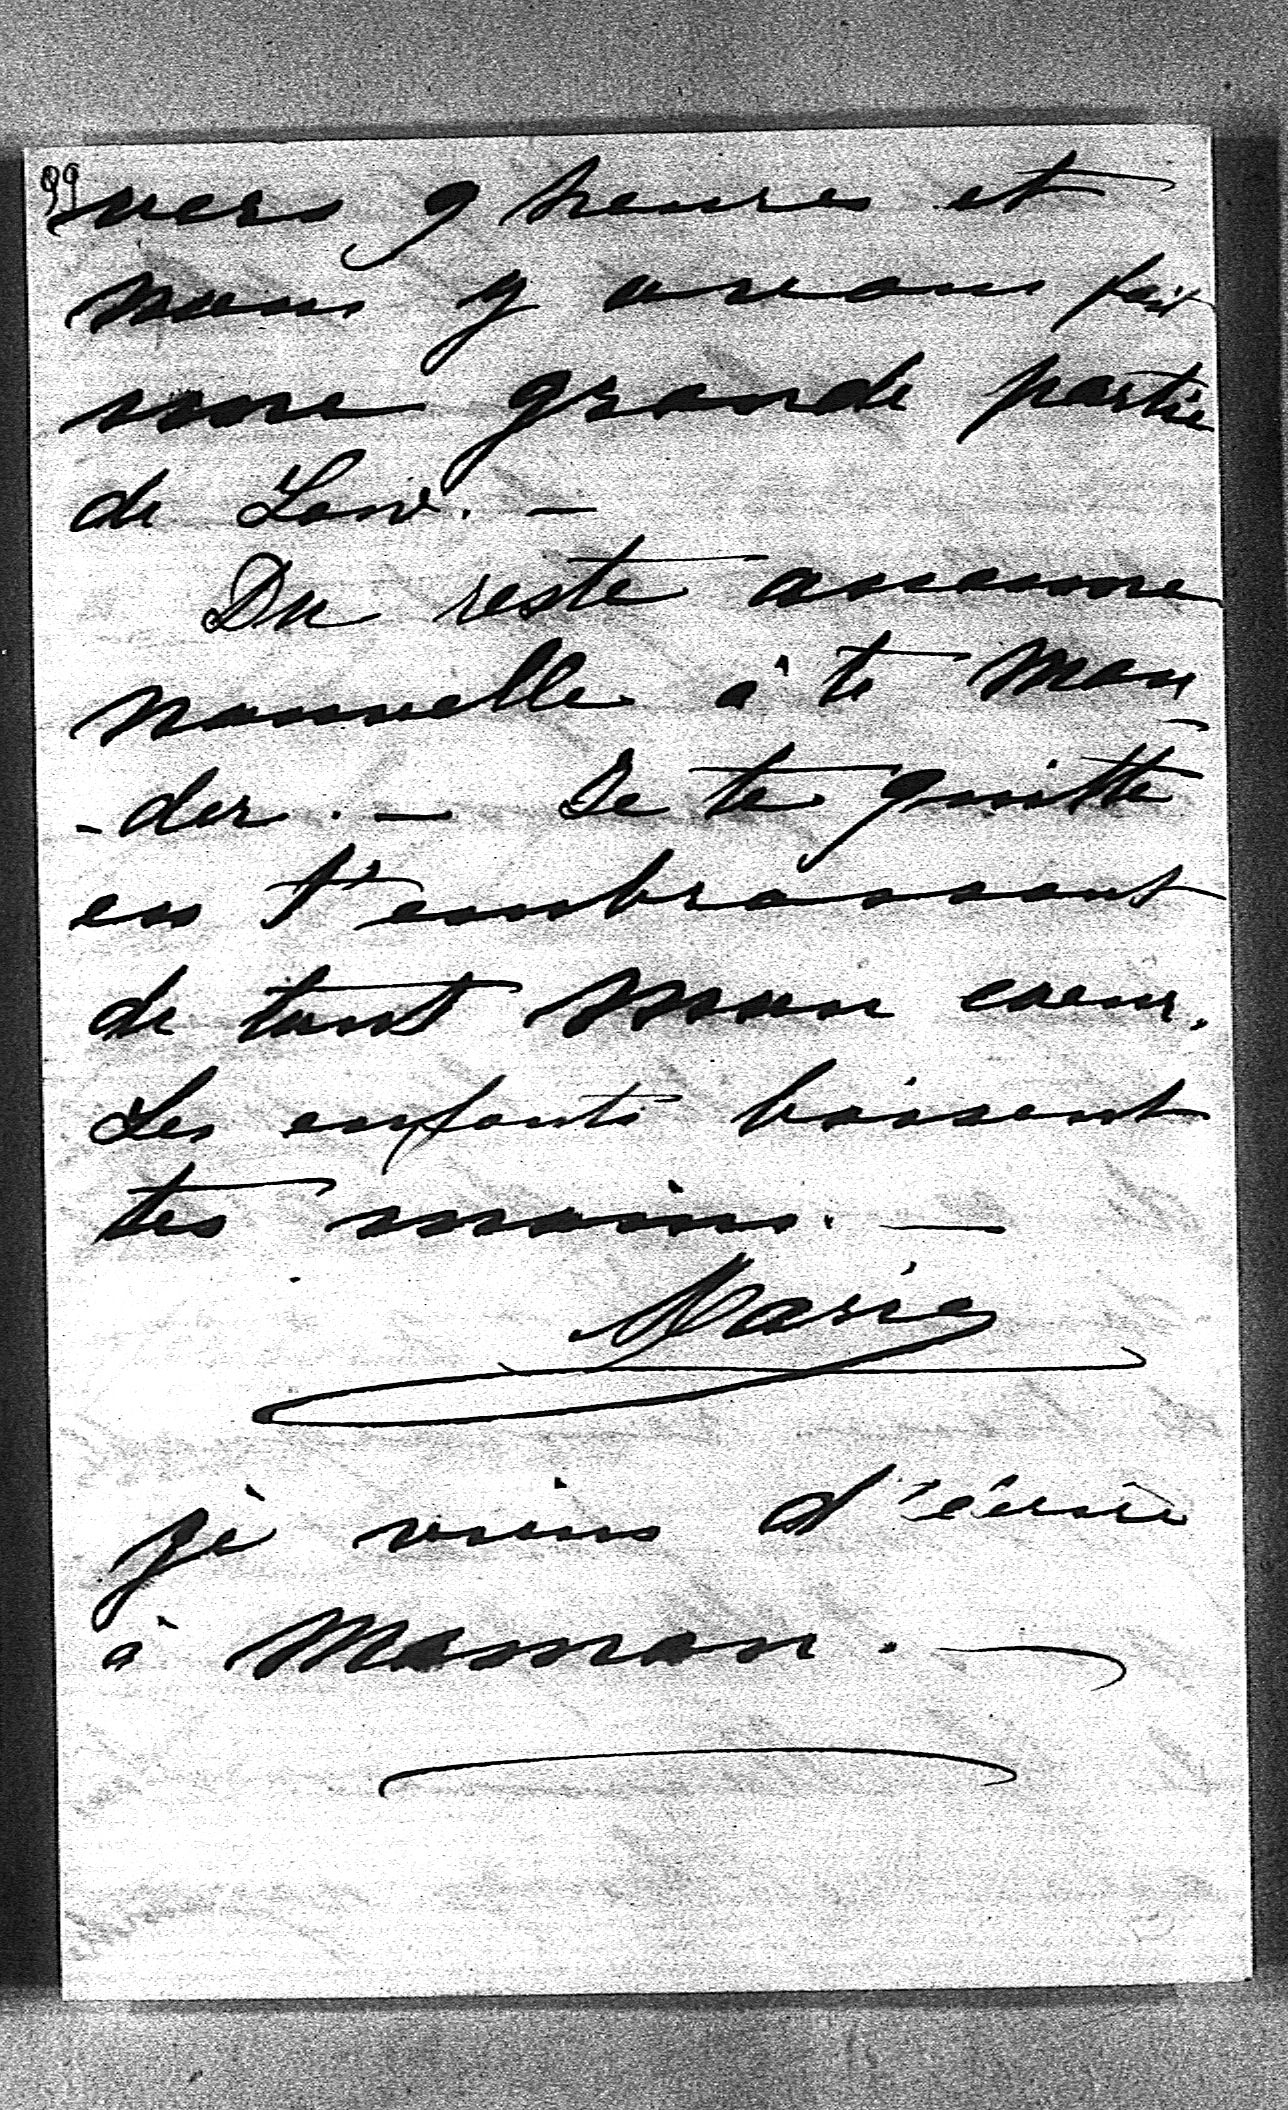 99
vers 9 heures et
nous y avons fait
une grande partie
de
Du reste aucune
nouvelle à te man
-der. — Je te quitte
en t'embrassant
de tout mon coeur.
Les enfants baisent
tes mains. —
Marie
je viens d'écrire
à Maman. —